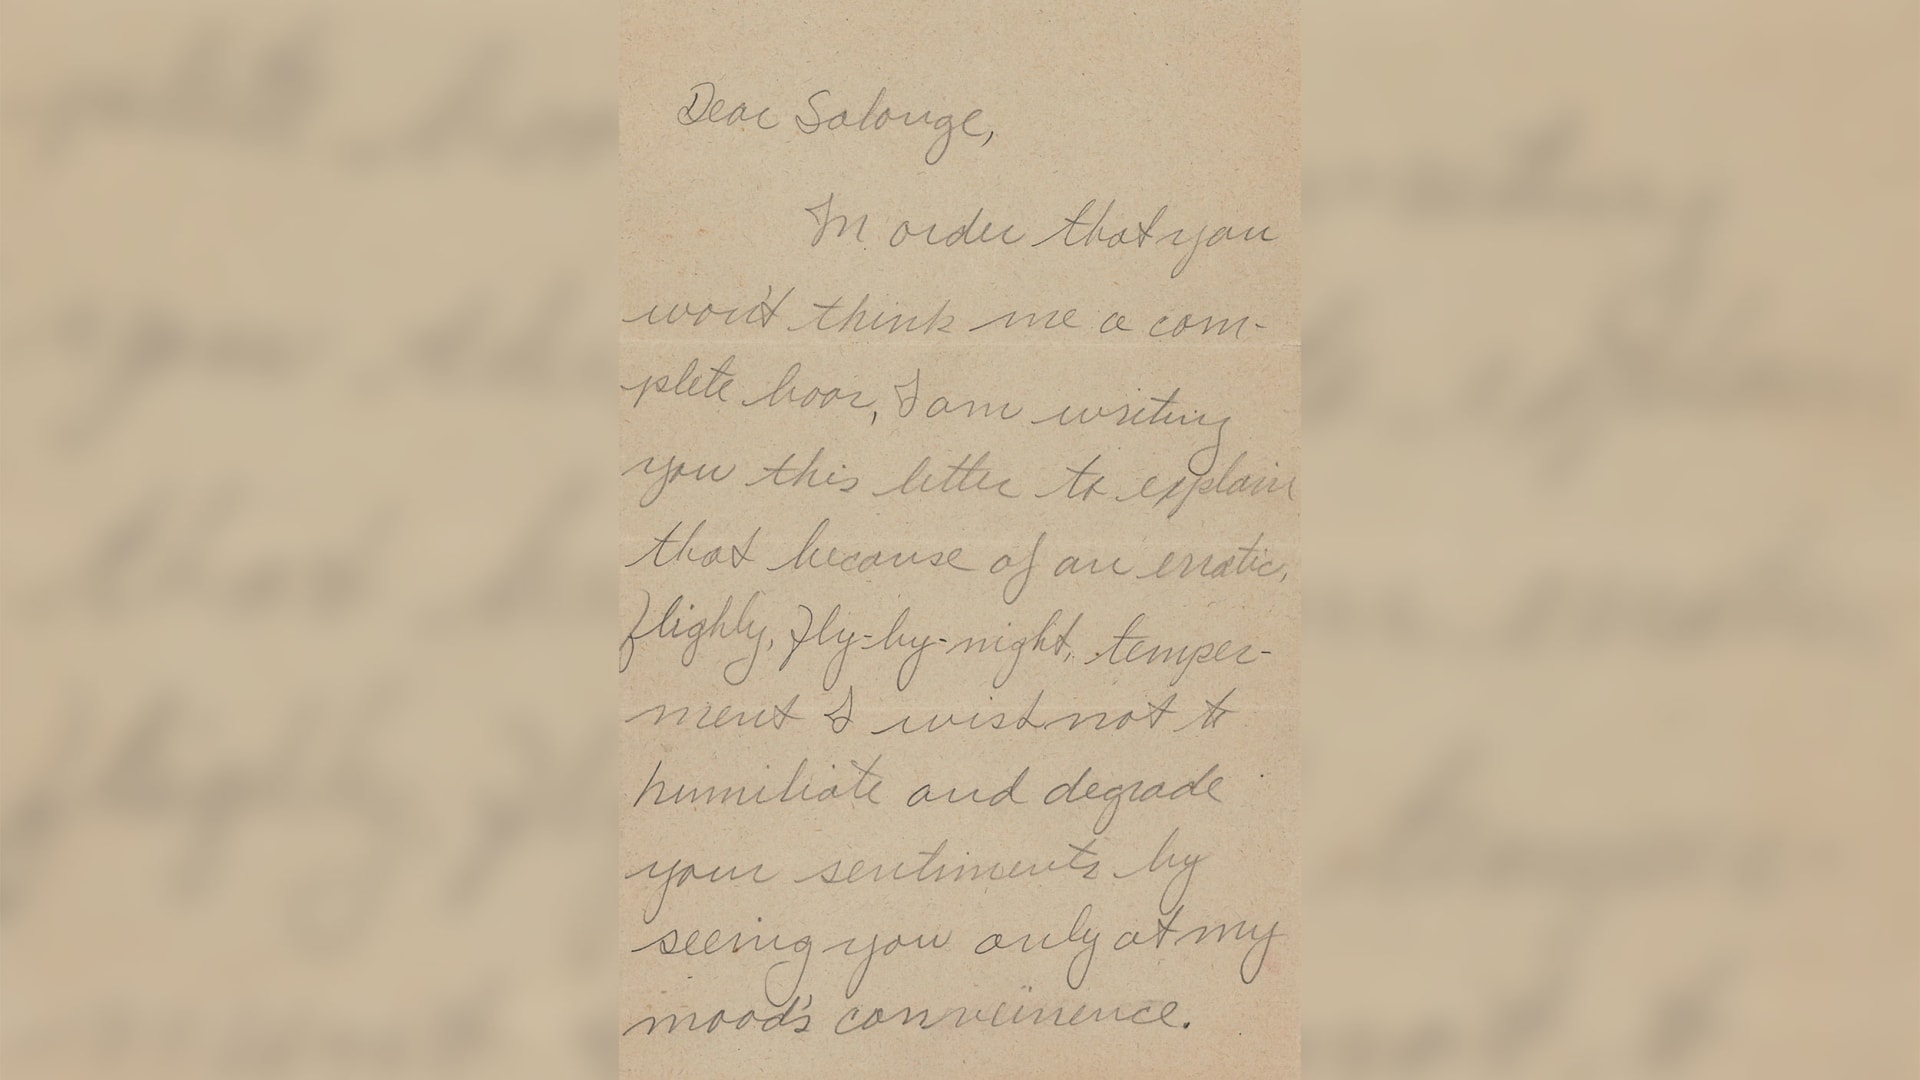 Dear Solange,
In order that you
won't think me a com-
plete boor, I am writing
you this letter to explain
that because of an erratic,
flighly, fly-by-night, temper-
ment I wish not to
humiliate and degrade
your sentiments by
seeing you only at my
mood's conveinience.